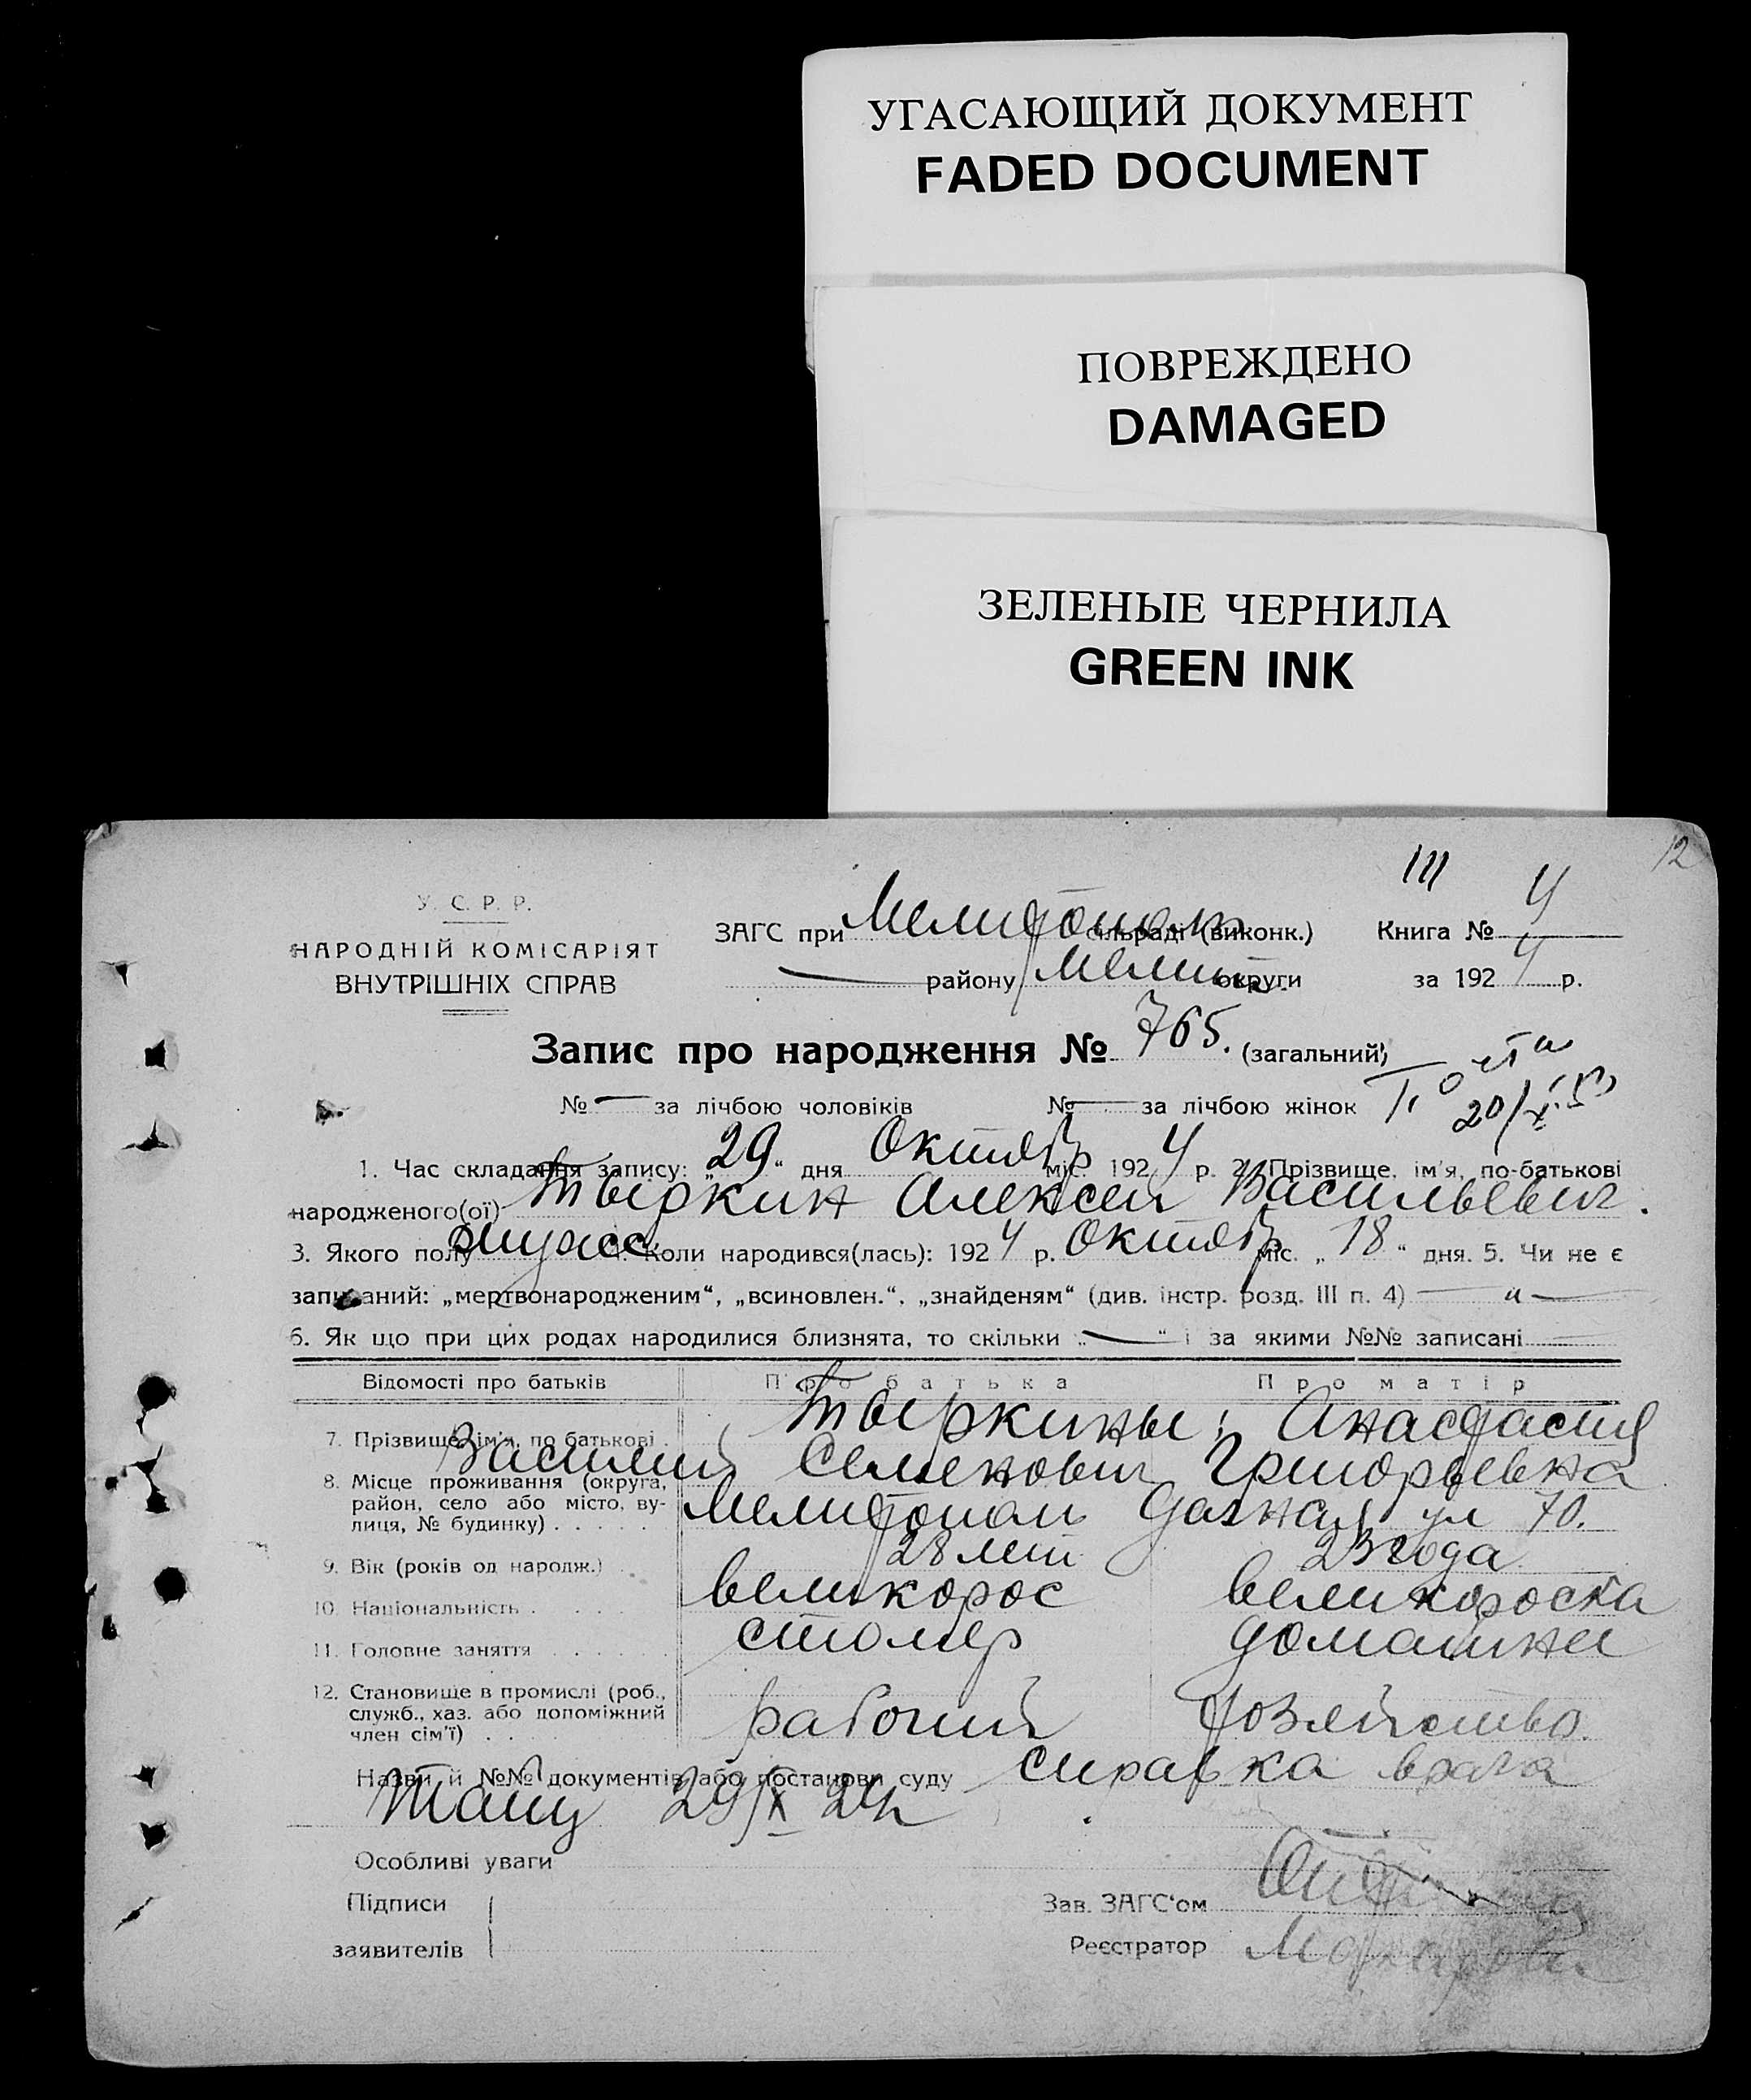 УГАСАЮЩИЙ ДОКУМЕНТ
FADED DOCUMENT
ПОВРЕЖДЕНО
DAMAGED
ЗЕЛЕНЫЕ ЧЕРНИЛА
GREEN INK
12
III
У. С. Р. Р.
НАРОДНІЙ КОМІСАРІЯТ
ВНУТРІШНІХ СПРАВ
ЗАГС при Мелитополь сільраді (виконк.) Книга № 4
— району Мелит. округи за 1924 р.
Запис про народження № 765. (загальний)
№ — за лічбою чоловіків № — за лічбою жінок
20/X 53
1. Час складання запису: „29“ дня Октябр міс. 1924 р. 2. Прізвище, ім'я, по-батькові
народженого(ої) Тыркин Алексей Васильевич.
3. Якого полу мужс. Коли народився(лась): 1924 р. Октябр міс. „18“ дня. 5. Чи не є
записаний: „мертвонародженим“, „всиновлен.“, „знайденям“ (див. інстр. розд. III п. 4) —
6. Як що при цих родах народилися близнята, то скільки „—“ і за якими №№ записані
Відомості про батьків Про батька Про матір
7. Прізвище, ім'я, по батькові Тыркины; Анастасия
Василий Семенович Григорьевна
8. Місце проживання (округа,
район, село або місто, вулиця, № будинку) Мелитополь Дачная ул 70.
9. Вік (років од народж.) 28 лет 23 года
10. Національність великорос великороска
11. Головне заняття столяр домашнее
12. Становище в промислі (роб.,
служб., хаз. або допоміжний
член сім'ї) рабочий хозяйство.
Назви й №№ документів або постанови суду справка врача
29/X 24
Особливі уваги
Підписи
заявителів
Зав. ЗАГС'ом
Реєстратор